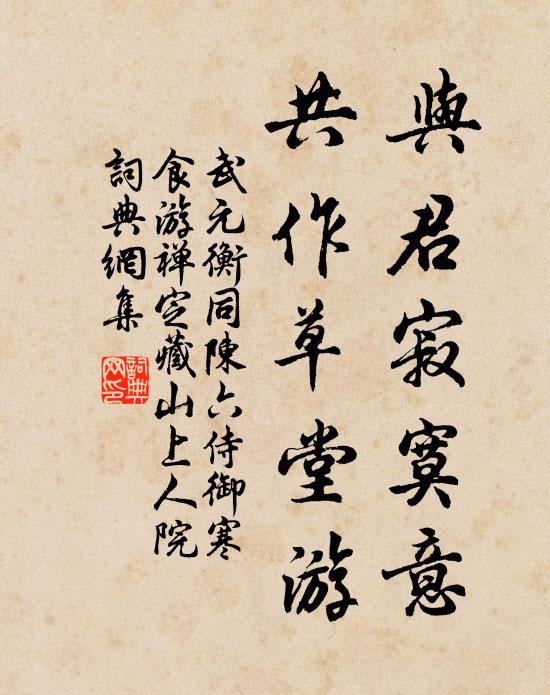 與君寂寞意
共作草堂游
武元衡同陳六侍御寒
食游禅定藏山上人院
詞典網集
詞典
网印